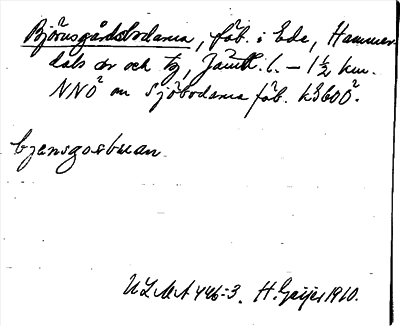 Björnsgårdsbodarna, fäb. i Ede, Hammer-
dals sn och tg, Jämtl. l. – 1 ½ km.
NNÖ om Sjöbodarna fäb. k3600Ö.
bjensgosbuan
ULMA 446:3. H. Geijer 1910.